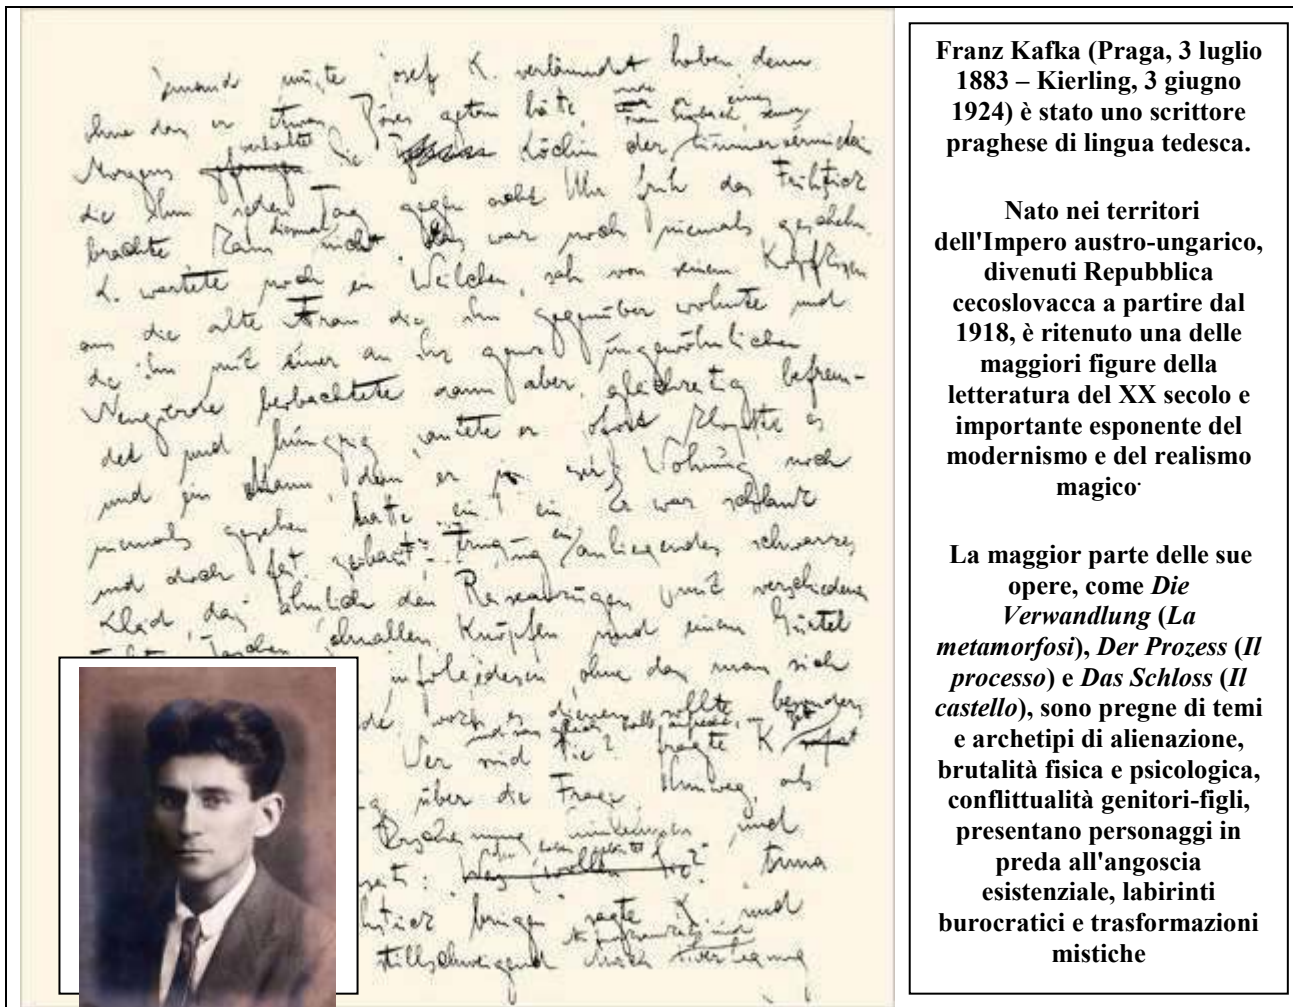 Jemand mußte Josef K. verläumdet haben denn
ohne daß er etwas Böses getan hätte,
Morgens verhaftet die Köchin der Zimmervermieterin
die ihm jeden Tag gegen acht Uhr früh das Frühstück
brachte kam diesmal nicht. Das war noch niemals geschehn.
K. wartete noch ein Weilchen, sah von seinem Kopfkissen
aus die alte Frau die ihm gegenüber wohnte und
die ihn mit einer an ihr ganz ungewöhnlichen
Neugierde beobachtete dann aber, gleichzeitig befrem-
det und hungrig, läutete er. Sofort klopfte es
und ein Mann, den er in Wohnung noch
niemals gesehen hatte ein. Er war schlank
und doch fest gebaut, er trug ein anliegendes schwarzes
Kleid, das ähnlich den Reiseanzügen mit verschiedenen
Taschen, Schnallen, Knöpfen und einem Gürtel
infolgedessen, ohne daß man sich
de, wozu es dienen sollte, besonders
Wer sind Sie? fragte K.
über die Frage hinweg, als
Erscheinung hinnehmen und
Was wollen Sie? Anna
bringen sagte K. und
stillschweigend durch
Franz Kafka (Praga, 3 luglio
1883 – Kierling, 3 giugno
1924) è stato uno scrittore
praghese di lingua tedesca.
Nato nei territori
dell'Impero austro-ungarico,
divenuti Repubblica
cecoslovacca a partire dal
1918, è ritenuto una delle
maggiori figure della
letteratura del XX secolo e
importante esponente del
modernismo e del realismo
magico.
La maggior parte delle sue
opere, come Die
Verwandlung (La
metamorfosi), Der Prozess (Il
processo) e Das Schloss (Il
castello), sono pregne di temi
e archetipi di alienazione,
brutalità fisica e psicologica,
conflittualità genitori-figli,
presentano personaggi in
preda all'angoscia
esistenziale, labirinti
burocratici e trasformazioni
mistiche